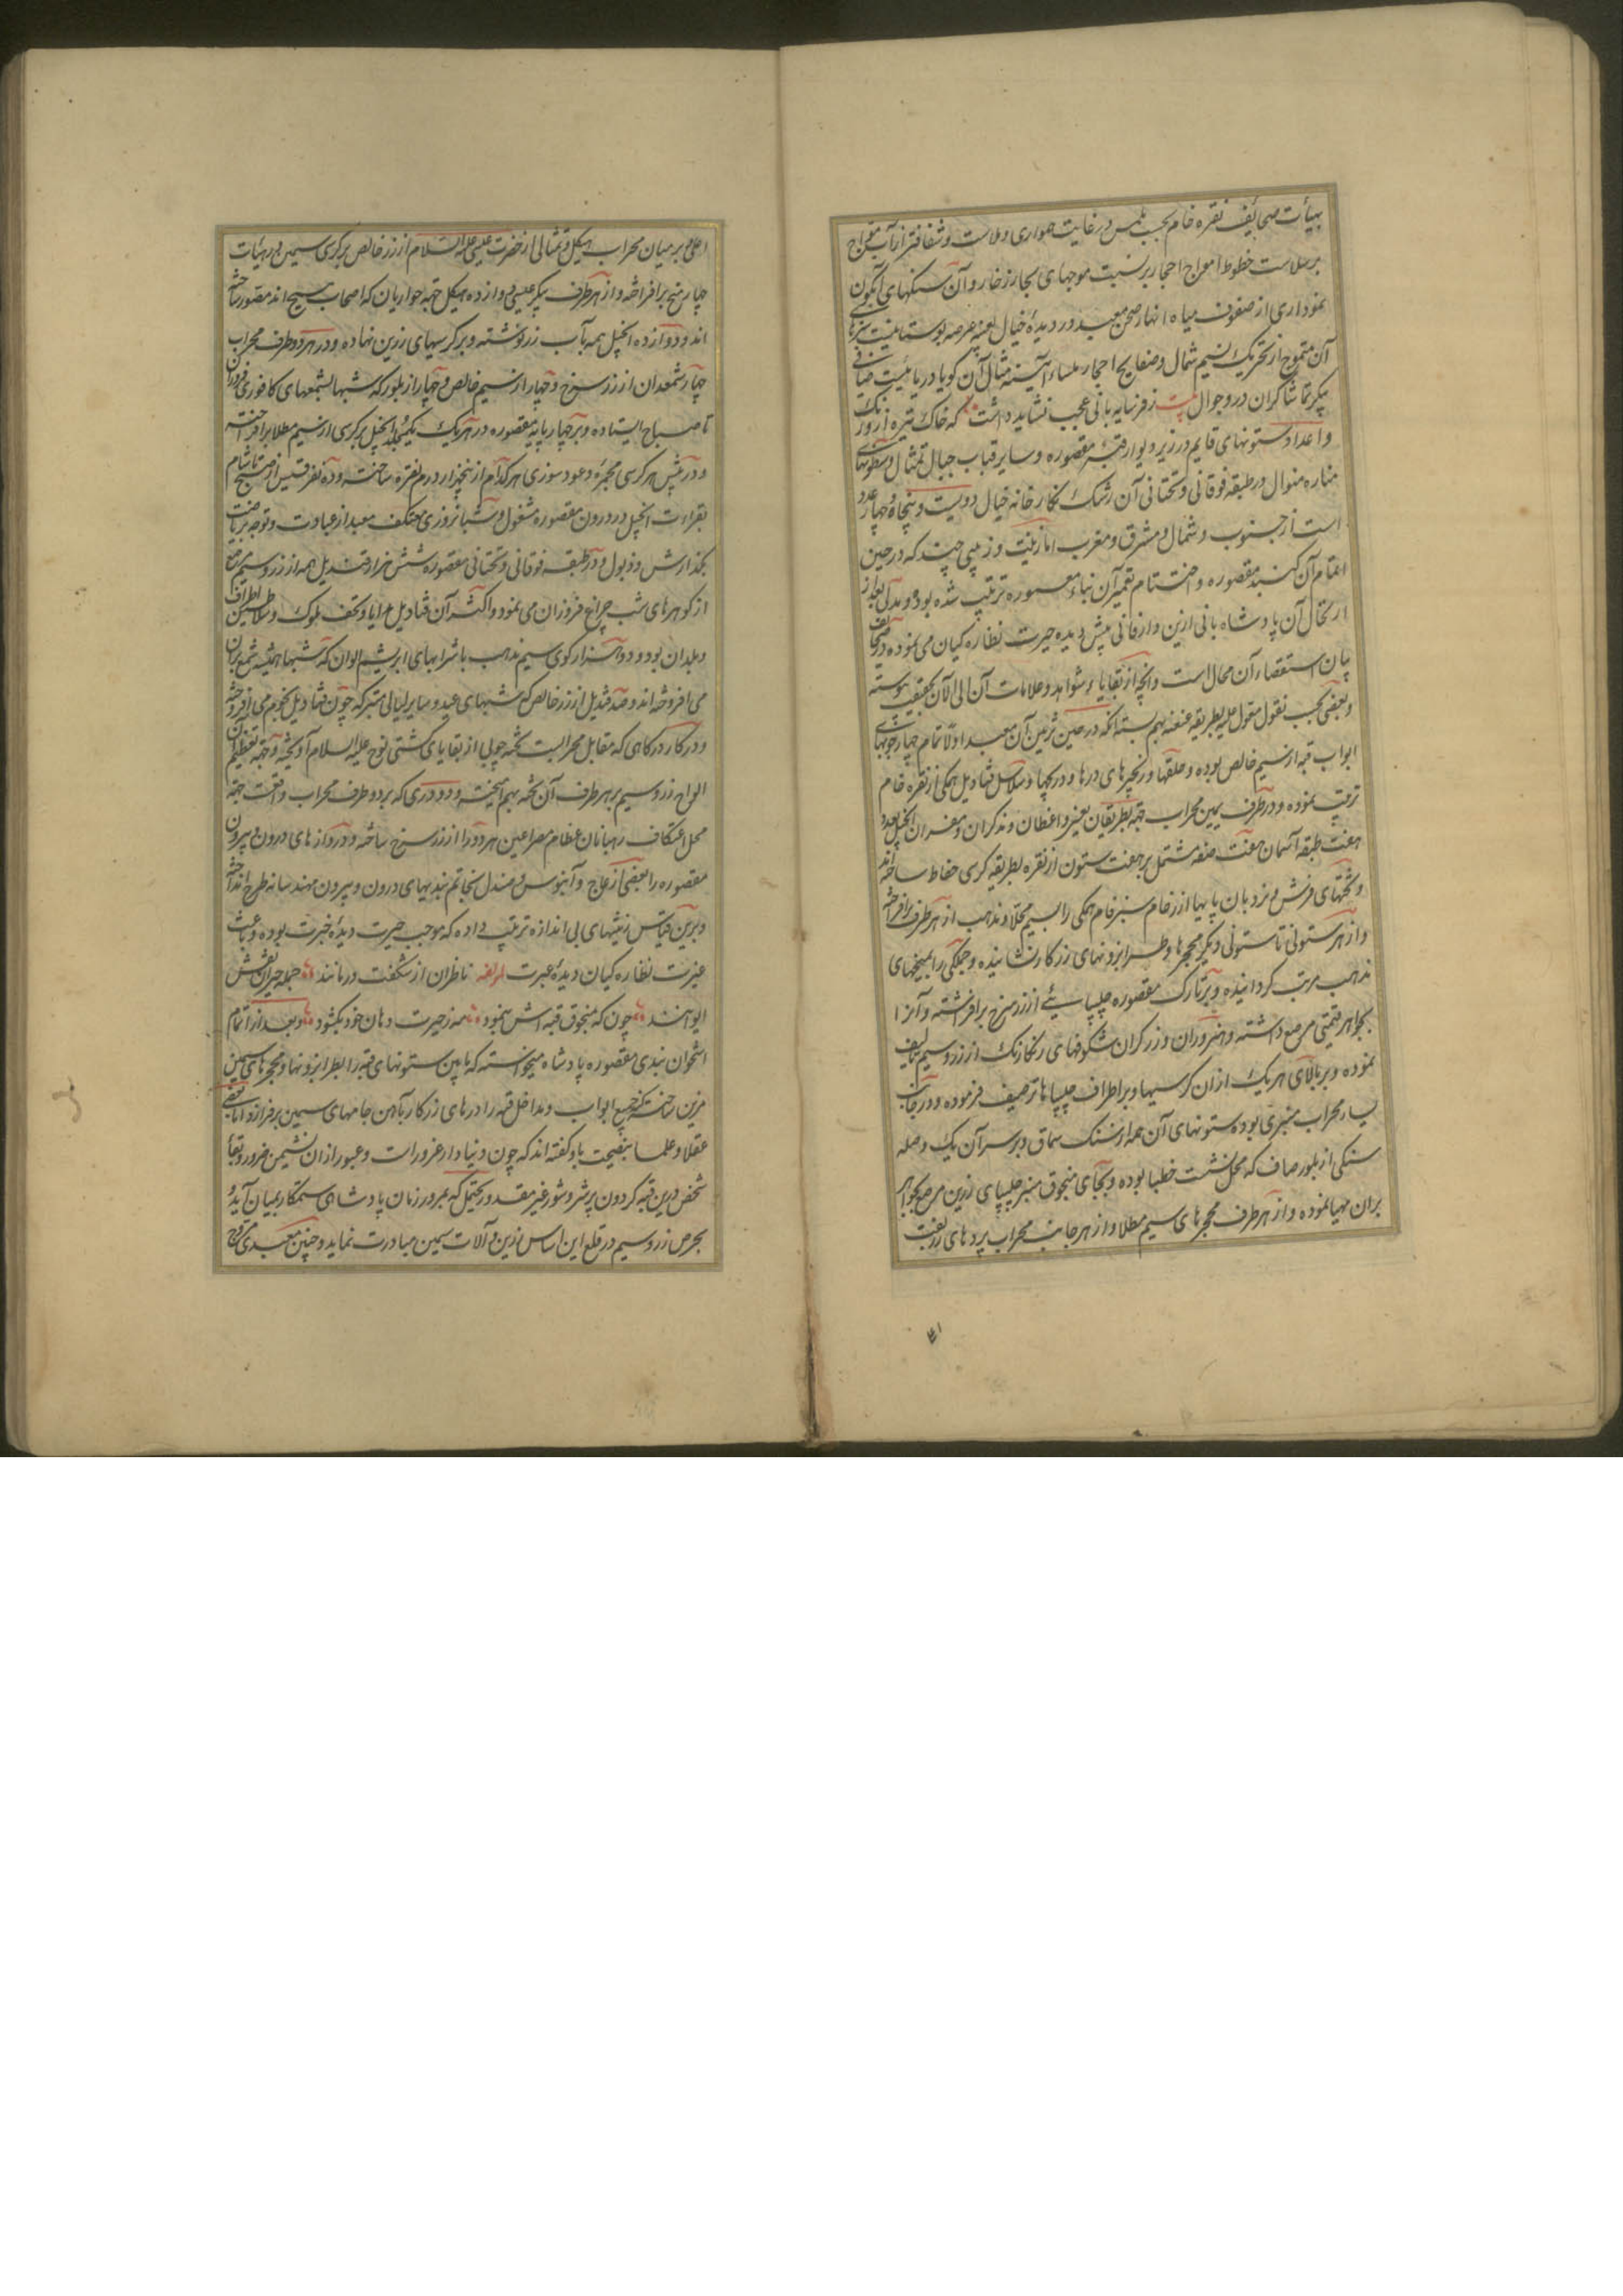 بهیأت صحائف نقره خام بحسب لمس در غایت همواری و ملاست و شفافتر از آب مواج
بر سلاست خطوط امواج احجار بر نسبت موجهای بحار زخار و آن سنکهای آبکون
نموداری از صفوف میاه انهار صحن معبد در دیدهٔ خیال بعینه عرصه بوستانیست
آن متموج از تحریک نسیم شمال و صفایح احجار ملساء آیینه مثال آن کویا دریائیست
پیکر تماشاکران در و جوال بیت ز فر سایه بانی عجب نشاید داشت که خاک تیره
و اعداد ستونهای قایم در زیر دیوار قبه مقصوره و سایر قباب جبال تمثال و سطونهای
مناره منوال در طبقه فوقانی و تحتانی آن رشک نکارخانه خیال دویست و پنجاه و چهار عدد
است از جنوب و شمال و مشرق و مغرب اما زینت و زیبی چند که در حین
اتمام آن کنبد مقصوره و اختتام تعمیر آن بناء معموره ترتیب شده بود و مدتی بعد از
ارتحال آن پادشاه بانی ازین دار فانی پیش دیده حیرت نظاره کیان می نموده
بیان استقصاء آن محال است و آنچه از بقایاء شواهد و علامات آن الی الآن بحقیقت پیوسته
و بعضی بحسب نقول مقول علیه بطریقه عنعنه بهم بسته آنکه در حین تزیین آن معبد اولا تمام چهارچوبهای
ابواب قبه از سیم خالص بوده و حلقها و زنجیرهای درها و دریچها و سلاسل قنادیل همکی از نقره خام
ترتیب نموده و در طرف یمین محراب جهة بطریقان یعنی واعظان و مذکران و مفسران انجیل بعدد
هفت طبقه آسمان هفت صفه مشتمل بر هفت ستون از نقره بطریقه کرسی حفاظ ساخته اند
و تختهای فرش و نردبان پایها از رخام سبزفام همکی را بسیم محلا و مذهب از هر طرف برافراخته
و از هر ستونی تا ستونی دیکر محجرها و طرابزونهای زرکار نشانیده و جملکی را بمیخهای
مذهب مرتب کردانیده و بر تارک مقصوره چلیپائی از زر سرخ برافراشته و آنرا
بجواهر قیمتی مرصع داشته و هنروران و زرکران شکوفهای رنکارنک از زر و سیم تالیف
نموده و بر بالای هر یک ازان کرسیها و بر اطراف چلیپاها ترصیف فرموده و در جانب
یسار محراب منبری بوده ستونهای آن همه از سنک سماق و بر سر آن یک وصله
سنکی از بلور صاف که محل نشست خطبا بوده و بجای منجوق منبر چلیپای زرین مرصع بجواهر
بران مهیا نموده و از هر طرف محجرهای سیم مطلا و از هر جانب محراب پردهای زربفت
اعلی و بر میان محراب هیکل و تمثالی از حضرت عیسی علیه السلام از زر خالص بر کرسی سیمین در هیأت
چلیپا برافراخته و از هر طرف پیکر عیسی دوازده هیکل جهة حواریان که اصحاب مسیح اند مصور ساخته
اند و دوازده انجیل همه بآب زر نوشته و بر کرسیهای زرین نهاده و در هر دو طرف محراب
چهار شمعدان از زر سرخ و چهار از سیم خالص و چهار از بلور که شبها شمعهای کافوری فروزان
تا صباح ایستاده و بر چهار پایه مقصوره در هر یک یکجلد انجیل بر کرسی از سیم مطلا برافراخته
و در پیش هر کرسی مجمرهٔ و عودسوزی هر کدام از پنجهزار درم نقره ساخته و ده نفر قسیس از صبح تا شام
بقراءت انجیل در درون مقصوره مشغول و شبانروزی معتکف معبد از عبادت و توجه بریاضت
کذارش و ذبول و در طبقه فوقانی و تحتانی مقصوره شش هزار قندیل همه از زر و سیم
از کوهرهای شب چراغ فروزان می نمود و اکثر آن قنادیل هدایا و تحف ملوک و سلاطین اطراف
و بلدان بود و دو هزار کوی سیم مذهب با شرابهای ابریشم الوان که شبها همیشه شمع بران
می افروخته اند و صد قندیل از زر خالص که شبهای عید و سایر لیالی متبرکه چون قنادیل نجوم می افروخته
و در کنار درکاهی که مقابل محرابست تخته چوبی از بقایای کشتی نوح علیه السلام آویخته و جهة تعظیم
الواح زر و سیم بر هر طرف آن تخته بهم آمیخته و دو دری که بر دو طرف محراب واقعست جهة
محل اعتکاف رهبانان عظام مصراعین هر دو را از زر سرخ ساخته و دروازهای درون و بیرون
مقصوره را بعضی از عاج و آبنوس و صندل بخاتم بندیهای درون و بیرون مهندسانه طرح انداخته
و برین قیاس زینتهای بی اندازه ترتیب داده که موجب حیرت دیدهٔ خبرت بوده و باعث
عبرت نظاره کیان دیدهٔ عبرت لمؤلفه ناظران از شکفت درمانند جمله حیران نقش
ایوانند چون که منجوق قبه اش بنمود مه ز حیرت دهان خود بکشود و بعد از اتمام
استخوان بندی مقصوره پادشاه میخواسته که مابین ستونهای قبه را بطرابزونها و محجرهای سیمین
مزین ساخته که جمیع ابواب و مداخل قبه را درهای زرکار بآهن جامهای سیمین برفرازد اما بعضی
عقلا و علما بنصیحت باو کفته اند که چون دنیا دار غرورات و عبور ازان نشیمن ضرور و بقاء
شخص درین قبه کردون پر شر و شور غیر مقدور یحتمل که بمرور زمان پادشاهی ستمکار بمیان آید و
بحرص زر و سیم در قلع این اساس زرین و آلات سیمین مبادرت نماید و چنین معبدی